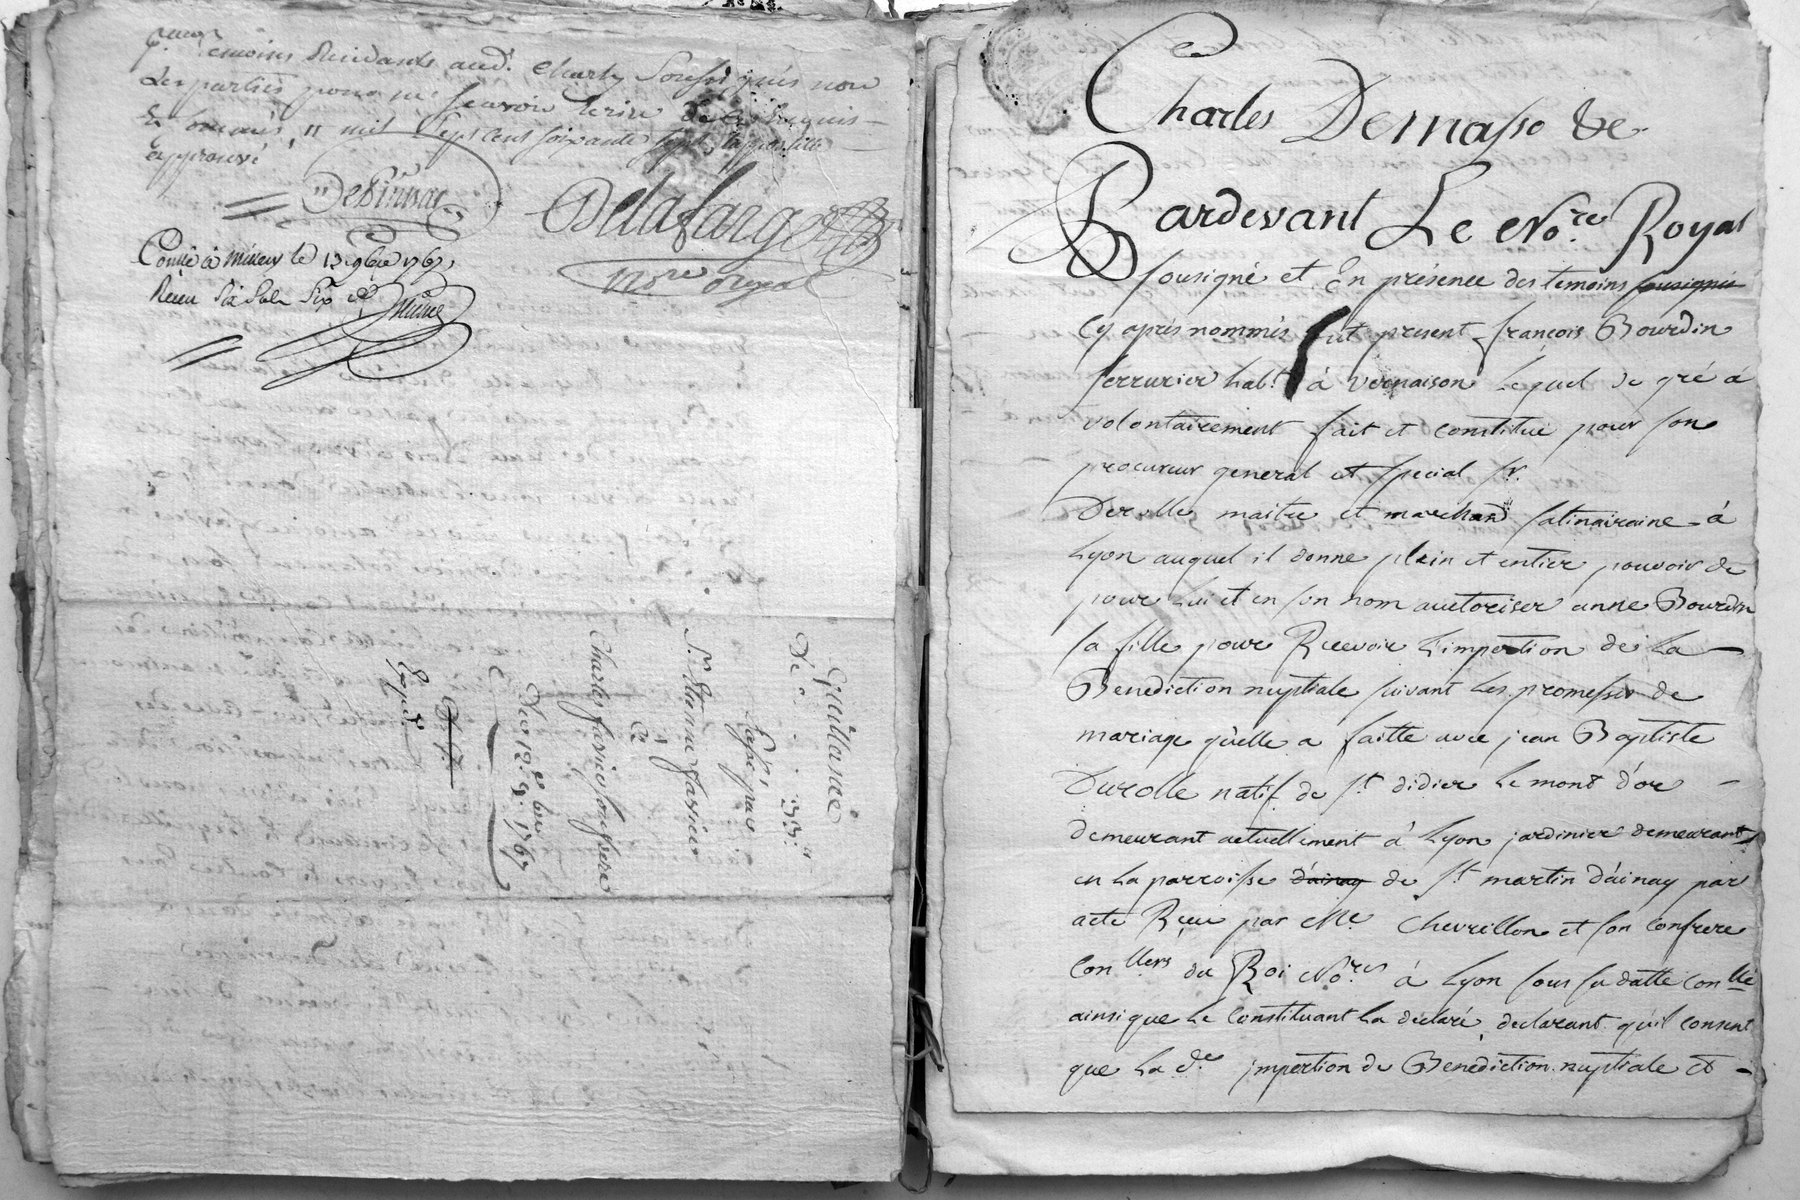 temoins Residants aud. Charly Soussignés non
Les parties pour ne scavoir Ecrire de ce Enquis
& sommés, mil sept cent soixante sept,
approuvé
Delafarge
no.re Royal
le 13 9bre 1767
Reçu six
Quittance
De
Passé par
Sr. Etienne farsieu
à
Charles farsieu son frere
Du 12e. 9.bre 1767
Expedié
Charles Demasso &c
Pardevant Le No.re Royal
sousigné et En présence des temoins sousignés
Cy aprés nommés fut present françois Bourdin
serrurier hab.t á vernaison Lequel de gré á
volontairement fait et constitué pour son
procureur general et special sr.
Derolle maitre et marchand satinaire á
Lyon auquel il donne plein et entier pouvoir de
pour Lui et en son nom auctoriser anne Bourdin
sa fille pour Recevoir L'impertion de La
Benediction nuptiale suivant Les promesses de
mariage qu'elle a faitte avec jean Baptiste
Durolle natif de St. didier Le mont d'or
demeurant actuellement á Lyon jardinier demeurant
en La parroisse d'ainay de St. martin d'ainay par
acte Reçu par Me. Chevrillon et son confrere
Con.llers du Roi No.res á Lyon sous sa datte con.lle
ainsi que Le Constituant La declaré, declarant qu'il consent
que La d.e impertion de Benediction nuptiale et